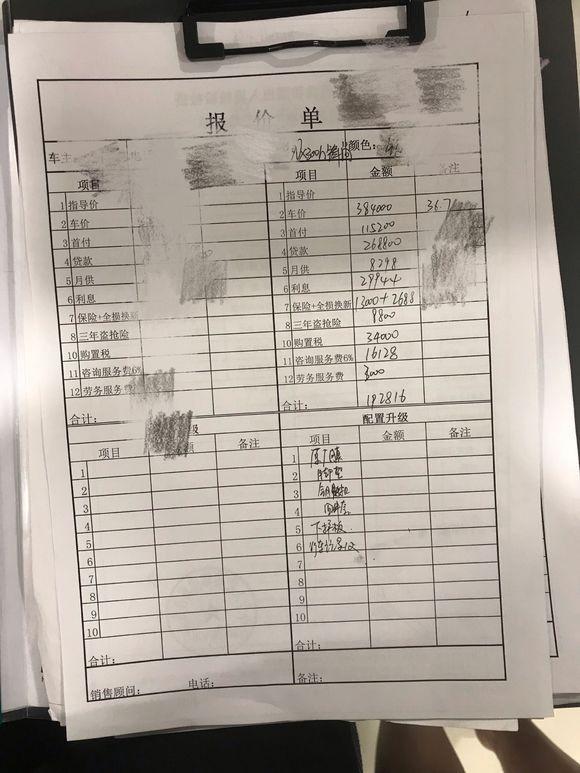 报价单
车主 NX300h 颜色:
项目 项目 金额 备注
1 指导价 1 指导价
2 车价 2 车价 384000 36.7
3 首付 3 首付 115200
4 贷款 4 贷款 268800
5 月供 5 月供 8298
6 利息 6 利息 29944
7 保险+全损换新 7 保险+全损换新 13000+2688
8 三年盗抢险 8 三年盗抢险 8800
10 购置税 10 购置税 34000
11 咨询服务费6% 11 咨询服务费6% 16128
12 劳务服务费 12 劳务服务费 3000
合计: 合计: 192816
级 配置升级
项目 额 备注 项目 金额 备注
1 1 原厂
2 2
3 3
4 4
5 5 下护板
6 6
7 7
8 8
9 9
10 10
合计: 合计:
销售顾问: 电话: 备注: